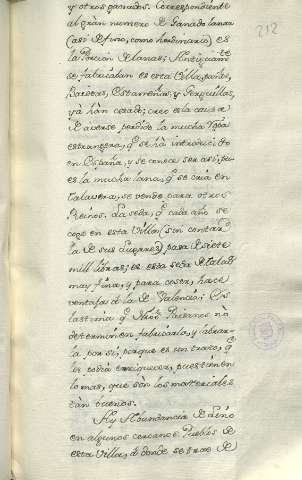 y otros ganados. Correspondiente
al gran numero de Ganado lanar
(asi fino, como hordinario) es
la porcion de lanas: Antiguam.te
se fabricaban en esta Villa, paños,
Baietas, Estameñas, y Xerguillas,
yà hàn cesado; creo es la causa
haverse perdido la mucha ropa
estrangera, q.e se hà introducido
en España, y se conoce ser asi, pu
es la mucha lana, q.e se cria en
talavera, se vende para otros
Reinos. La seda, q.e cada año se
coge en esta Villa (sin contar
la de sus Lugares) pasa de siete
mill libras; es esta seda de talav.a
muy fina, y para coser, hace
ventaja à la de Valencia; Es
lastima q.e Ntros Paisanos no
determinen fabricarla, y labrar
la por si, porque es un trato, q.e
les podrà enriquecer, pues tienen
lo mas, que son los materiales
tan buenos.
Ay Abundancia de
en algunos cercanos Pueblos de
esta Villa, de donde se trae de
212